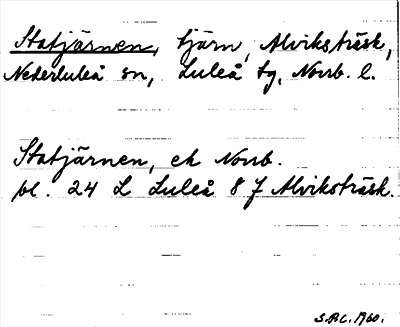 Statjärnen, tjärn, Alviksträsk,
Nederluleå sn, Luleå tg, Norrb. l.
Statjärnen, ek Norrb.
bl. 24 L Luleå 8 f Alviksträsk.
1960.